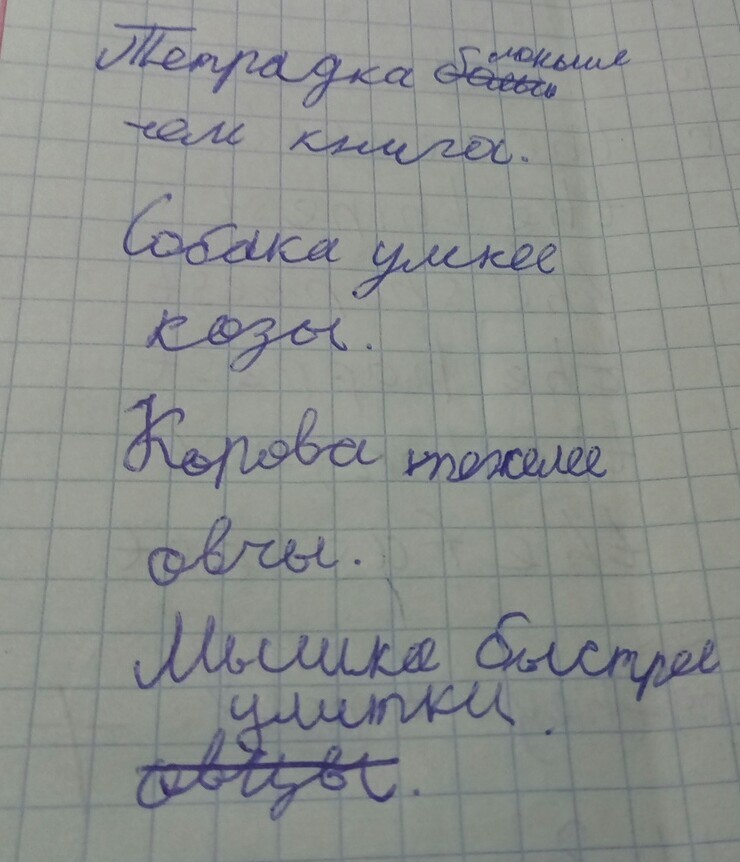 Тетрадка моньше
чем книга.
Собака умнее
козы.
Корова тожелее
овчы.
Мышка быстрее
улитки.
овцы.